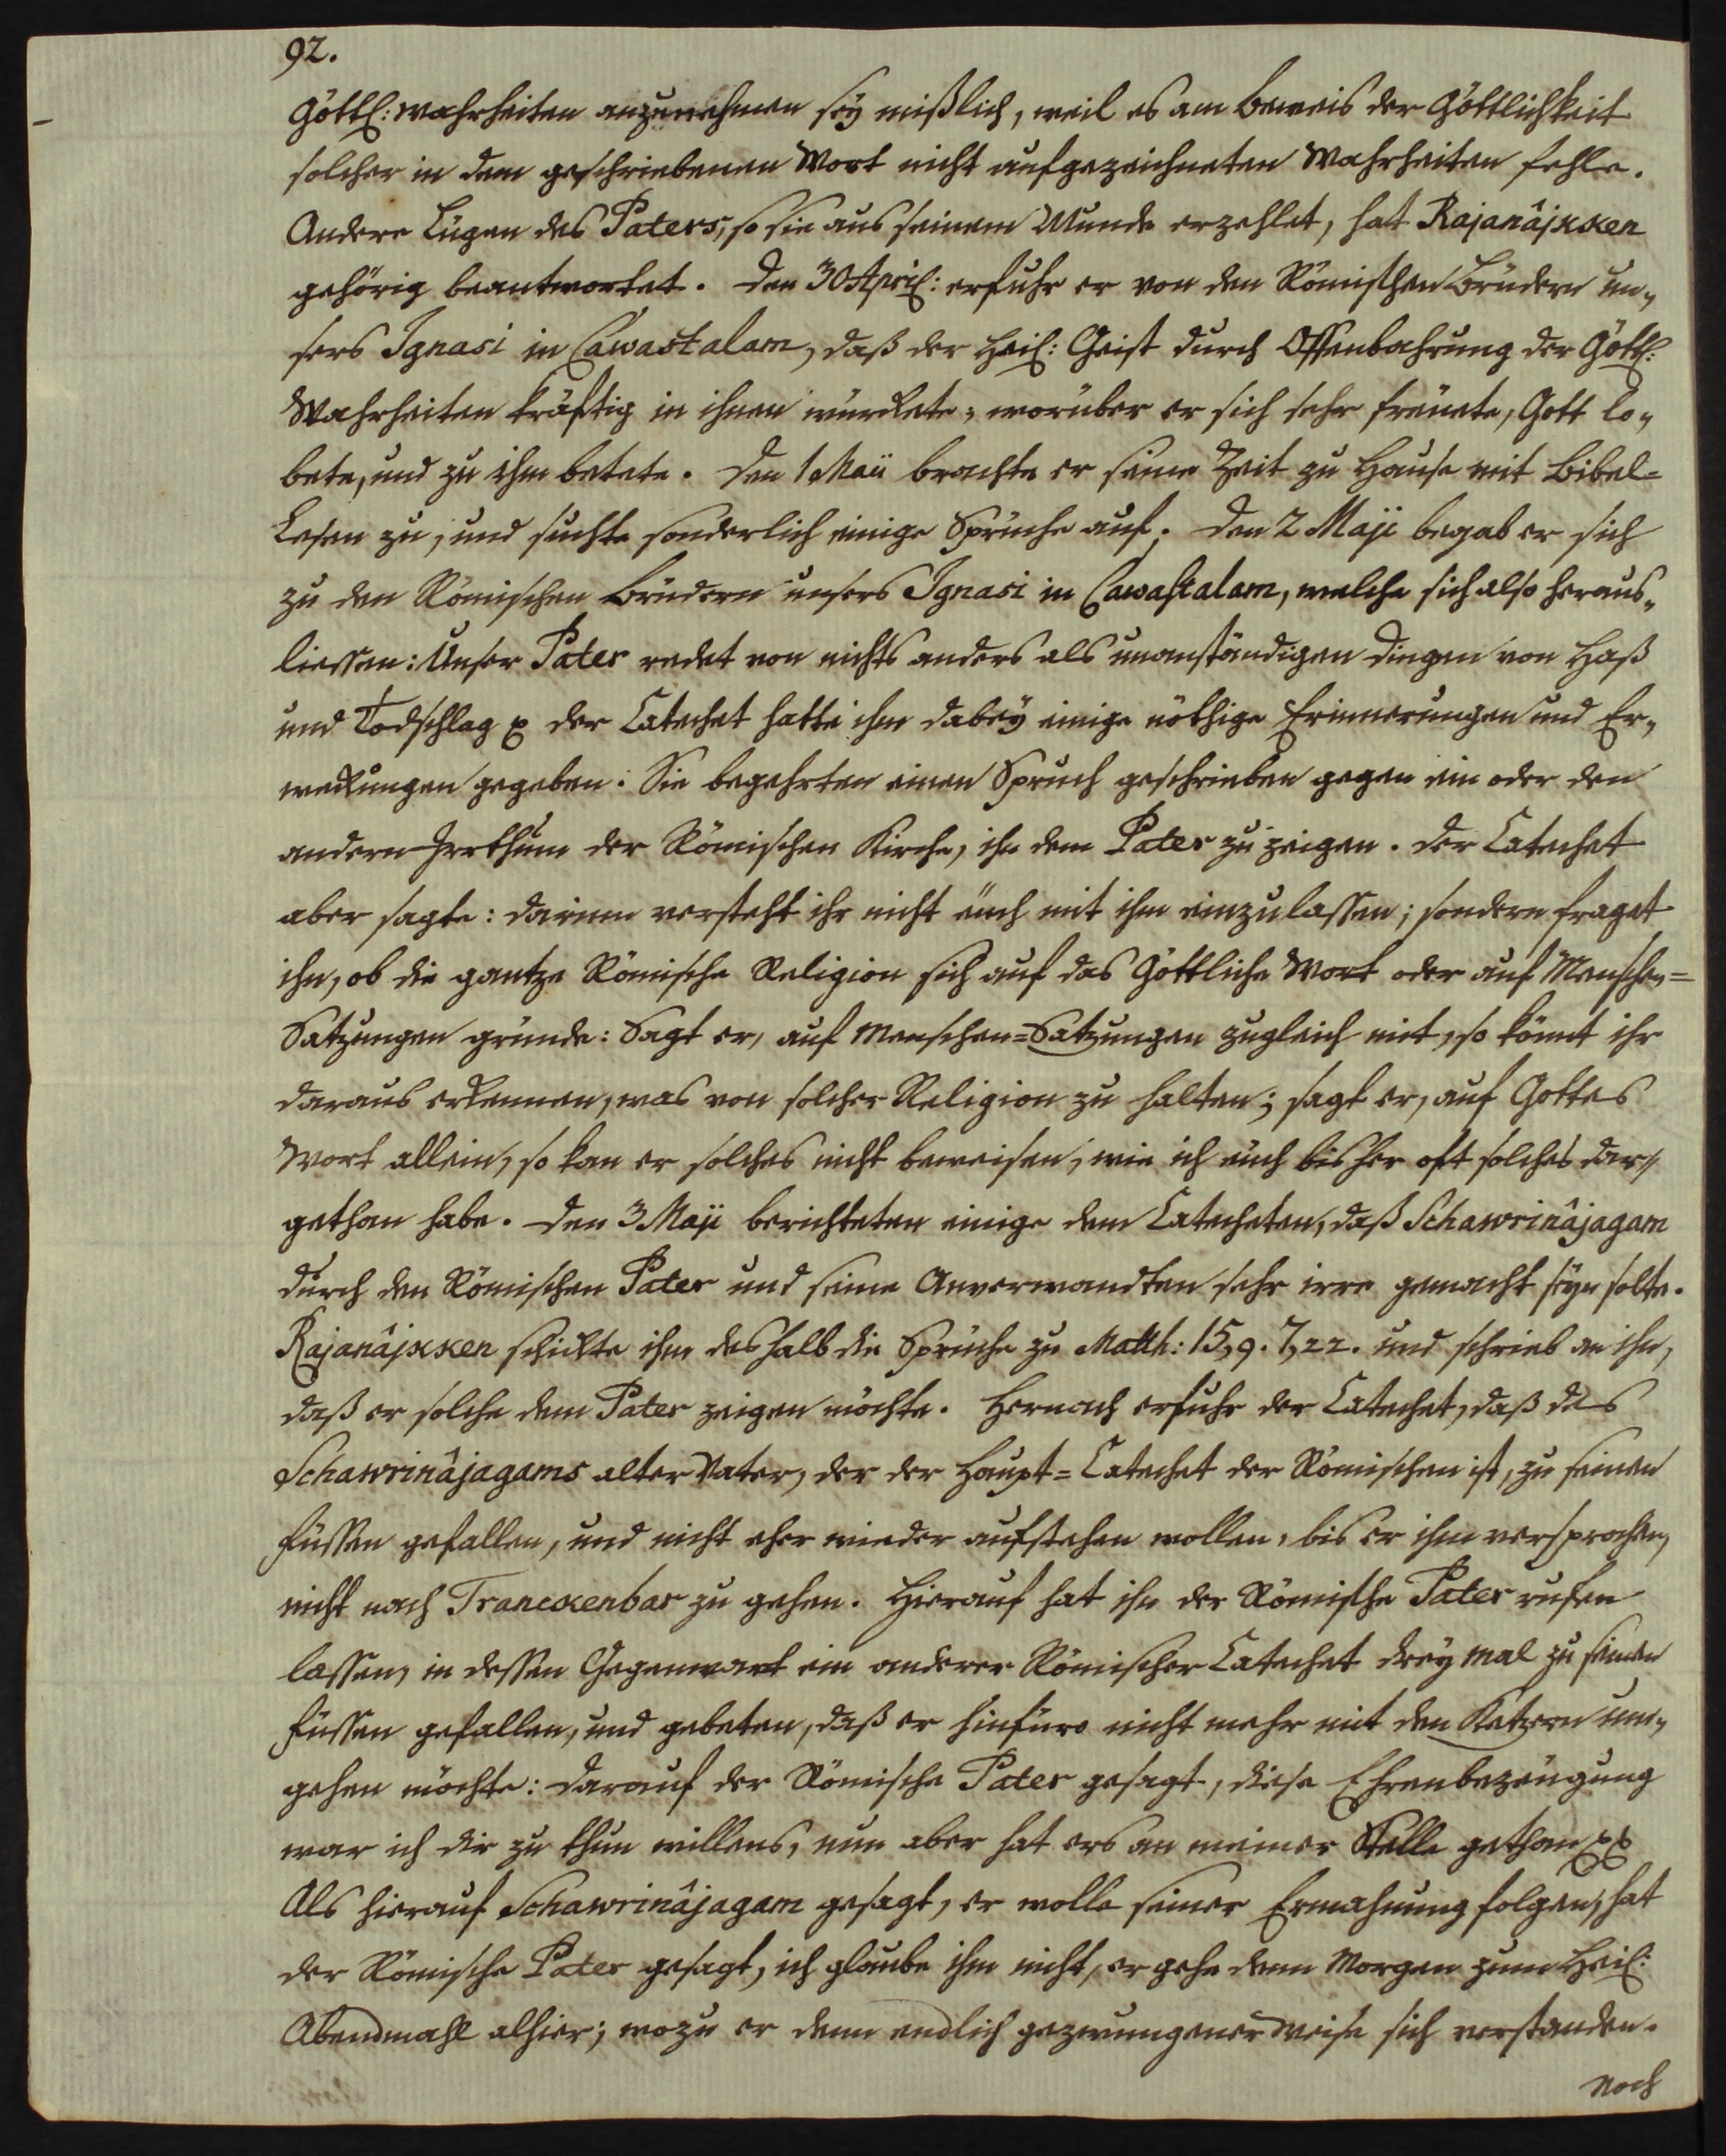 92.
Göttl: Wahrheiten anzunehmen sey mißlich, weil es am Beweis der Göttlichkeit
solcher in dem geschriebenen Wort nicht aufgezeichneten Wahrheiten fehle.
Andere Lügen des Paters, so sie aus seinem Munde erzehlet, hat Rajanâjkken
gehörig beantwortet. Den 30 April: erfuhr er von den Römischen Brüdern un„
sers Ignasi in Cawastalam, daß der Heil: Geist durch Offenbahrung der Göttl:
Wahrheiten kräftig in ihnen würckete; worüber er sich sehr freuete, Gott lo„
bete, und zu ihm betete. Den 1 Maii brachte er seine Zeit zu Hause mit Bibel=
Lesen zu, und suchte sonderlich einige Sprüche auf. Den 2 Maji begab er sich
zu den Römischen Brüdern unsers Ignasi in Cawastalam, welche sich also heraus„
liessen: Unser Pater redet von nichts anders als unanständigen Dingen von Haß
und Todschlag p der Catechet hatte ihm dabey einige nöthige Erinnerungen und Er„
weckungen gegeben. Sie begehrten einen Spruch geschrieben gegen ein oder den
andern Irrthum der Römischen Kirche, ihn dem Pater zu zeigen. Der Catechet
aber sagte: darinn versteht ihr nicht euch mit ihm einzulassen; sondern fraget
ihn, ob die gantze Römische Religion sich auf das Göttliche Wort oder auf Menschen=
Satzungen gründe: Sagt er, auf Menschen=Satzungen zugleich mit, so könnt ihr
daraus erkennen, was von solcher Religion zu halten; sagt er, auf Gottes
Wort allein, so kan er solches nicht beweisen, wie ich euch bisher oft solches dar„
gethan habe. Den 3 Maji berichteten einige dem Catecheten, daß Schawrinâjagam
durch den Römischen Pater und seine Anverwandten sehr irre gemacht seyn solte.
Rajanâjkken schickte ihm deshalb die Sprüche zu Matth: 15,9. 7,22. und schrieb an ihn,
daß er solche dem Pater zeigen möchte. Hernach erfuhr der Catechet, daß des
Schawrinâjagams alter Vater, der der Haupt=Catechet der Römischen ist, zu seinen
Füssen gefallen, und nicht eher wieder aufstehen wollen, bis er ihm versprochen,
nicht nach Tranckenbar zu gehen. Hierauf hat ihn der Römische Pater rufen
lassen, in dessen Gegenwart ein anderer Römischer Catechet drey mal zu seinen
Füssen gefallen, und gebeten, daß er hinfüro nicht mehr mit den Ketzern um„
gehen möchte: Darauf der Römische Pater gesagt, diese Ehrenbezeugung
war ich dir zu thun willens, nun aber hat ers an meiner Stelle gethan pp
Als hierauf Schawrinâjagam gesagt, er wolle seiner Ermahnung folgen, hat
der Römische Pater gesagt, ich glaube ihm nicht, er gehe denn Morgen zum Heil:
Abendmahl alhier; wozu er denn endlich gezwungener Weise sich verstanden.
Noch